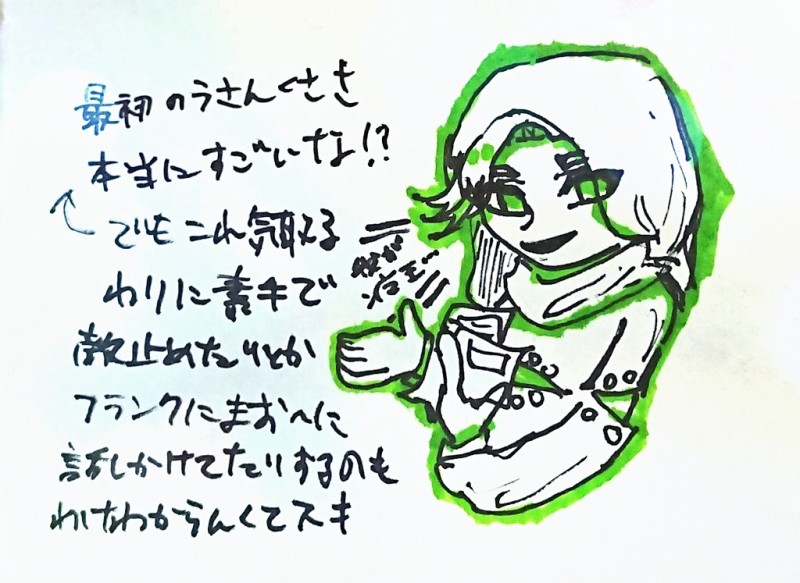 最初のうさんくささ
本当にすごいな!?
でもこれ気取ってる
わりに素手で
敵止めたりとか
フランクにまおーに
話しかけてたりするのも
わけわからんくてスキ